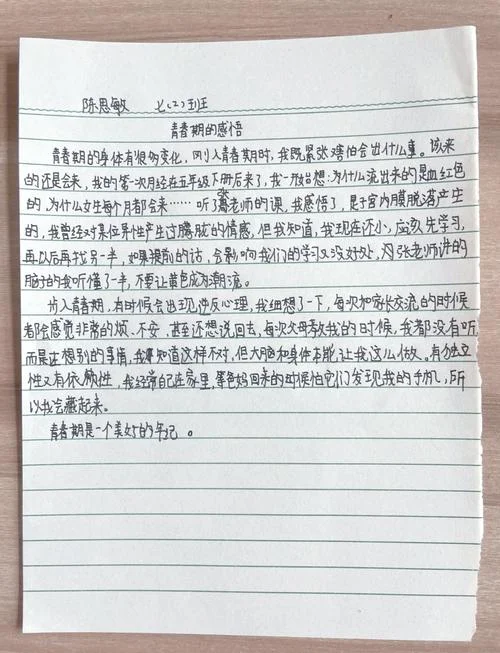 陈思敏 七(2)班
青春期的感悟
青春期的身体有很多变化，刚入青春期时，我既紧张害怕会出什么意。该来
的还是会来，我的第一次月经在五年级下册后来了，我一开始想：为什么流出来的是血红色
的，为什么女生每个月都会来……听了老师的课，我感悟了，是子宫内膜脱落产生
的，我曾经对某位异性产生过朦胧的情感，但我知道，我现在还小，应该先学习，
再以后再找另一半，如果提前的话，会影响我们的学习又没好处，张老师讲的
脑子的我听懂了一半，不要让黄色成为潮流。
步入青春期，有时候会出现逆反心理，我细想了一下，每次和家长交流的时候
都会感觉非常的烦、不安，甚至还想说回去，每次父母教我的时候，我都没有听
而是在想别的事情，我知道这样不对，但大脑和身体本能，让我这么做。有独立
性又有依赖性，我经常自己在家里，等爸妈回来的时候怕它们发现我的手机，所
以我会藏起来。
青春期是一个美好的年纪。